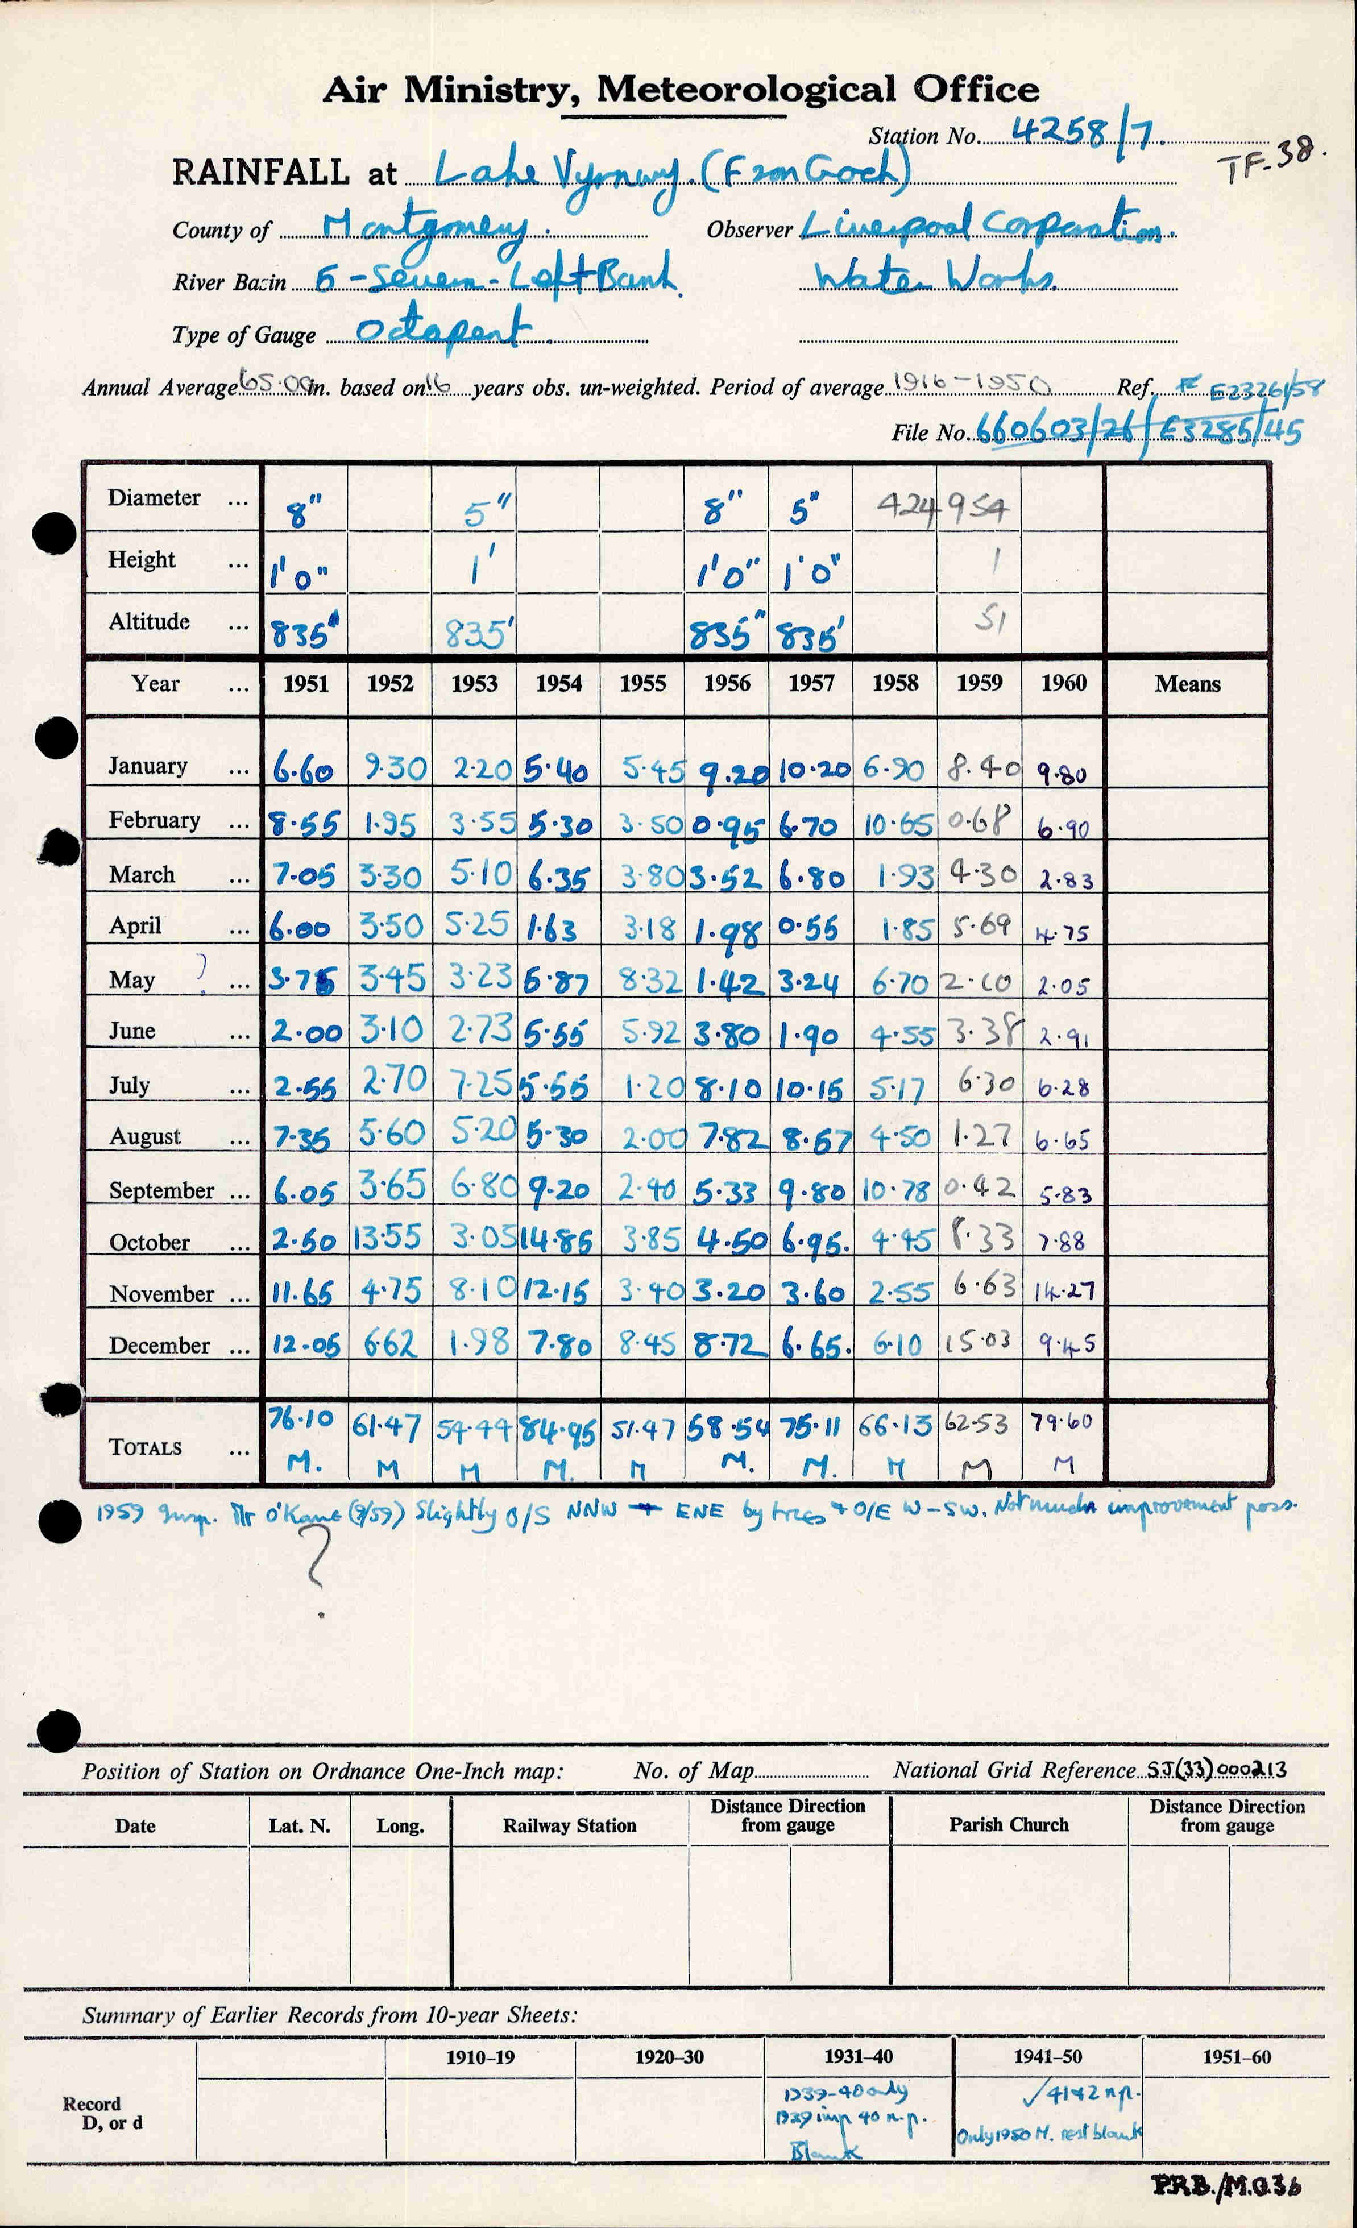 Air Ministry, Meteorological Office
Station No. 4258/7
TF-38.
RAINFALL at Lake Vyrnwy. (Fron Goch)
County of Montgomery. Observer Liverpool Corporation.
River Basin 5 - Severn - Left Bank. Water Works.
Type of Gauge Octapent
Annual Average 65.00 in. based on 16 years obs. un-weighted. Period of average 1916-1950 Ref. E23261/58
File No. 660603/26/E3285/45
Diameter ... 8" 5" 8" 5" 424 954
Height ... 1'0" 1' 1'0" 1'0" 1
Altitude ... 835" 835' 835" 835' 51
Year ... 1951 1952 1953 1954 1955 1956 1957 1958 1959 1960 Means
January ... 6.60 9.30 2.20 5.40 5.45 9.20 10.20 6.90 8.40 9.80
February ... 8.55 1.95 3.55 5.30 3.50 0.95 6.70 10.65 0.68 6.90
March ... 7.05 3.30 5.10 6.35 3.80 3.52 6.80 1.93 4.30 2.83
April ... 6.00 3.50 5.25 1.63 3.18 1.98 0.55 1.85 5.69 4.75
May ? ... 3.75 3.45 3.23 5.87 8.32 1.42 3.24 6.70 2.10 2.05
June ... 2.00 3.10 2.73 5.55 5.92 3.80 1.90 4.55 3.38 2.91
July ... 2.55 2.70 7.25 5.55 1.20 8.10 10.15 5.17 6.30 6.28
August ... 7.35 5.60 5.20 5.30 2.00 7.82 8.57 4.50 1.27 6.65
September ... 6.05 3.65 6.80 9.20 2.40 5.33 9.80 10.78 0.42 5.83
October ... 2.50 13.55 3.05 14.85 3.85 4.50 6.95. 4.45 8.33 7.88
November ... 11.65 4.75 8.10 12.15 3.40 3.20 3.60 2.55 6.63 14.27
December ... 12.05 6.62 1.98 7.80 8.45 8.72 6.65. 6.10 15.03 9.45
TOTALS ... 76.10 61.47 54.44 84.95 51.47 58.54 75.11 66.13 62.53 79.60
M. M M M. M M. M. M M M
1959 Insp. Mr O'Kane (9/59) Slightly O/S NNW → ENE by trees + O/E W-SW. Not much improvement poss.
?
Position of Station on Ordnance One-Inch map: No. of Map National Grid Reference SJ(33)000213
Date Lat. N. Long. Railway Station Distance Direction from gauge Parish Church Distance Direction from gauge
Summary of Earlier Records from 10-year Sheets:
1910–19 1920–30 1931–40 1941–50 1951–60
Record D, or d
1939-40 only √41+2 n.p.
1939 imp 40 n.p. Only 1950 M. rest blank
Blank
P.R.B./M.O.36